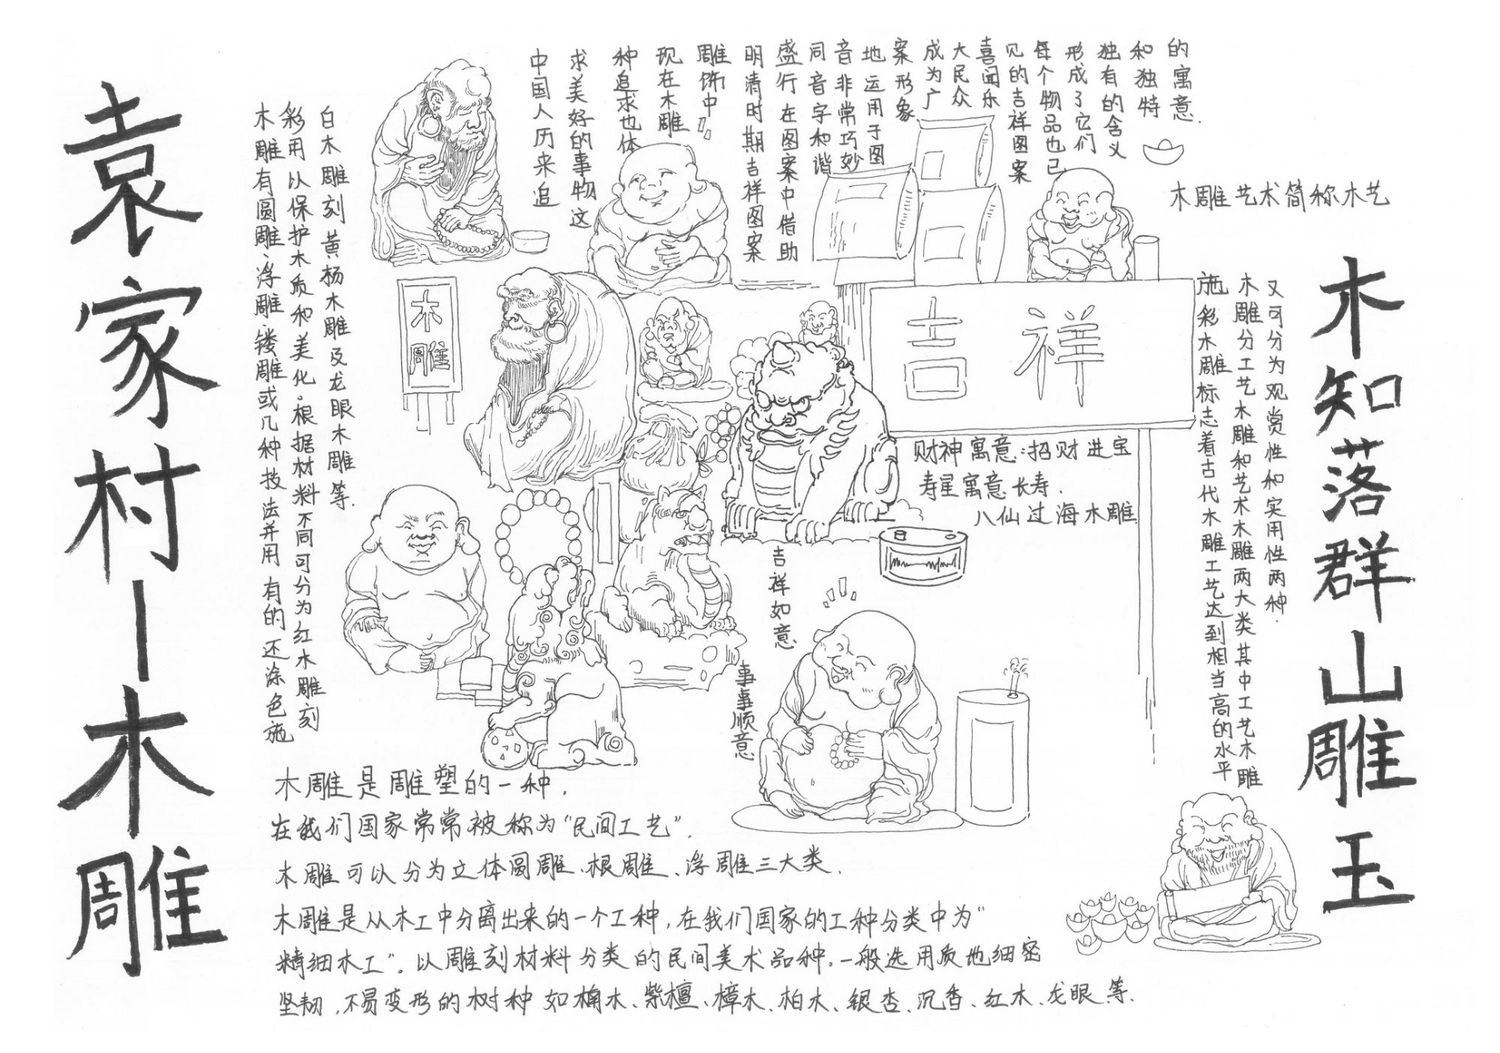 袁家村—木雕
木雕有圆雕、浮雕、镂雕或几种技法并用 有的还涂色施
彩用以保护木质和美化。根据材料不同可分为红木雕刻
白木雕刻 黄杨木雕及龙眼木雕等.
中国人历来追
求美好的事物这
种追求也体
现在木雕
雕饰中
明清时期吉祥图案
盛行 在图案中借助
同音字和谐
音非常巧妙
地运用于图
案形象
成为广
大民众
喜闻乐
见的吉祥图案
每个物品也已
形成了它们
独有的含义
和独特
的寓意.
木雕艺术简称木艺
木雕
吉祥
财神寓意:招财进宝
寿星寓意长寿.
八仙过海木雕
施彩木雕标志着古代木雕工艺达到相当高的水平
木雕分工艺木雕和艺术木雕两大类其中工艺木雕
又可分为观赏性和实用性两种.
木知落群山雕玉
吉祥如意
事事顺意
木雕是雕塑的一种.
在我们国家常常被称为“民间工艺”.
木雕可以分为立体圆雕、根雕、浮雕三大类.
木雕是从木工中分离出来的一个工种,在我们国家的工种分类中为“
精细木工”。以雕刻材料分类的民间美术品种.一般选用质地细密
坚韧.不易变形的树种如楠木、紫檀、樟木、柏木、银杏、沉香、红木、龙眼等.